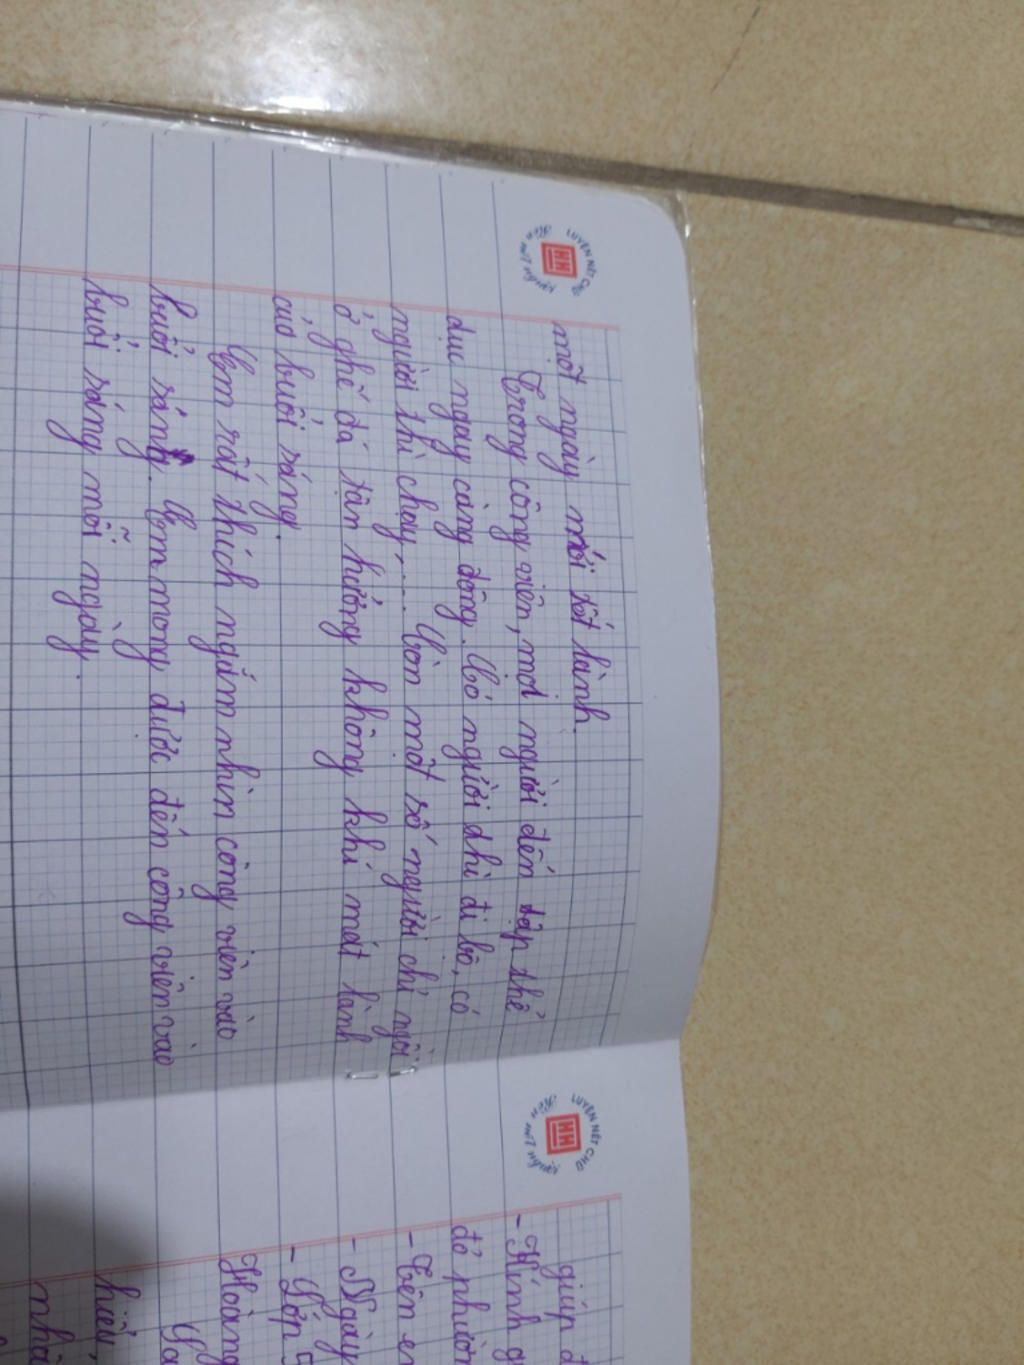 LUYỆN NÉT CHỮ
HH
Rèn nết người
một ngày mới tốt lành.
Trong công viên, mọi người đến tập thể
dục ngày càng đông. Có người thì đi bộ, có
người thì chạy,.... Còn một số người chỉ ngồi
ở ghế đá tận hưởng không khí mát lành
của buổi sáng.
Em rất thích ngắm nhìn công viên vào
buổi sáng. Em mong được đến công viên vào
buổi sáng mỗi ngày.
LUYỆN NÉT CHỮ
HH
Rèn nết người
giúp đ
- Kính g
đỏ phườn
- Tên em
- Ngày
- Lớp 
Hoàng
hiểu